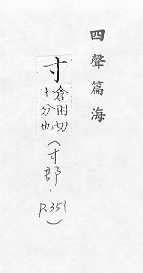 四聲篇海
寸 倉困切
十分也
(寸部.
P.351)